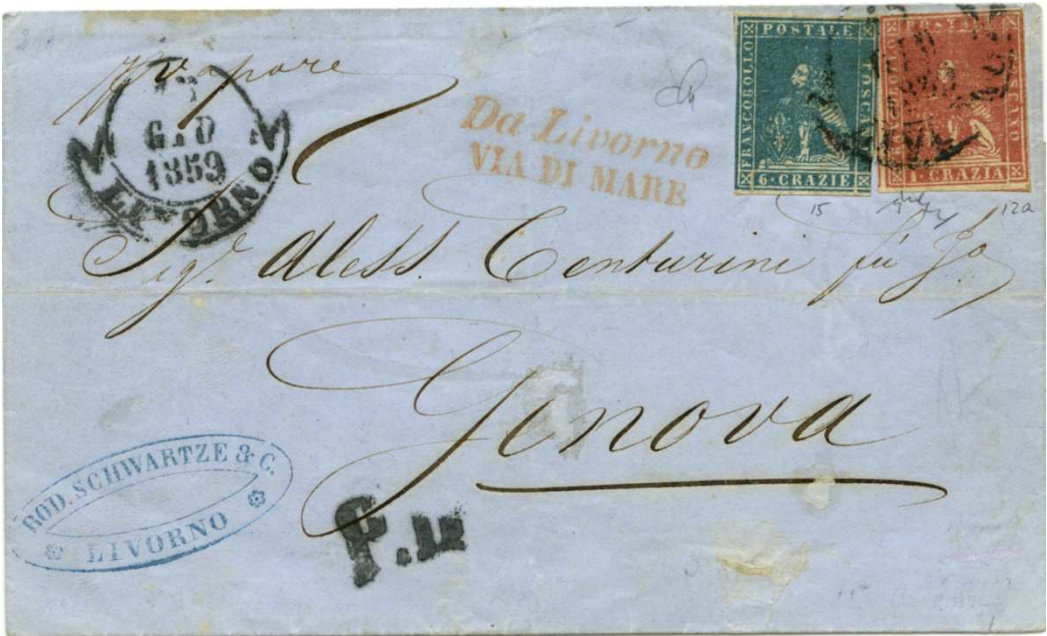 vapore
GIU
1859
LIVORNO
Da Livorno
VIA DI MARE
FRANCOBOLLO POSTALE TOSCANO
6·CRAZIE
POSTALE TOSCANO
1·CRAZIA
15
12a
Sigr. Aless. Centurini fu Go
Genova
ROD. SCHWARTZE & C.
LIVORNO